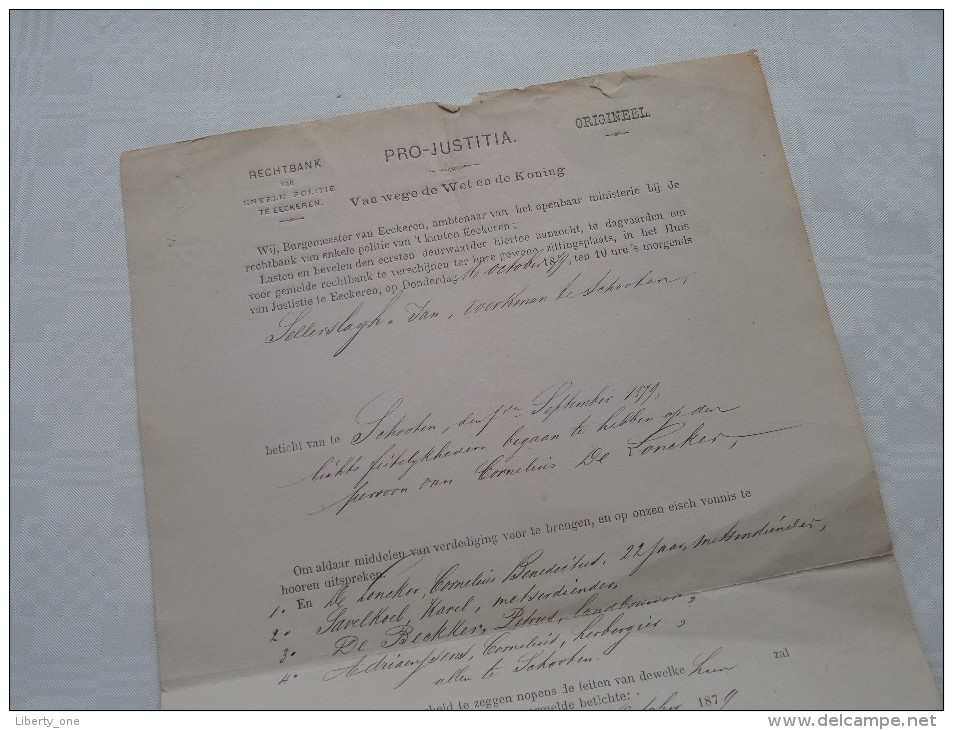 ORIGINEEL.
PRO-JUSTITIA.
RECHTBANK
VAN
ENKELE POLITIE
TE EECKEREN.
Van wege de Wet en de Koning
Wij, Burgemeester van Eeckeren, ambtenaar van het openbaar ministerie bij de
rechtbank van enkele politie van 't kanton Eeckeren;
Lasten en bevelen den eersten deurwaarder hiertoe aanzocht, te dagvaarden om
voor gemelde rechtbank te verschijnen ter hare gewone zittingsplaats, in het Huis
van Justistie te Eeckeren, op Donderdag 16 October 1879, ten 10 ure 's morgends
Sellerslagh Jan, werkman te Schooten,
beticht van te Schooten, den September 1879,
lichte feitelykheden begaan te hebben op den
persoon van Cornelius De Loncker,
Om aldaar middelen van verdediging voor te brengen, en op onzen eisch vonnis te
hooren uitspreken.
1° En De Loncker, Cornelius Benedictus, 22 jaar, metserdiender,
2° Savelkoel, Karel, metserdiender,
3° De Beckker, Petrus, Landbouwer,
4° Adriaenssens, Cornelius, herbergier,
allen te Schooten.
scheid te zeggen nopens de feiten van dewelke hun zal
gemelde betichte:
October 1879
Liberty_one
delcampe.net